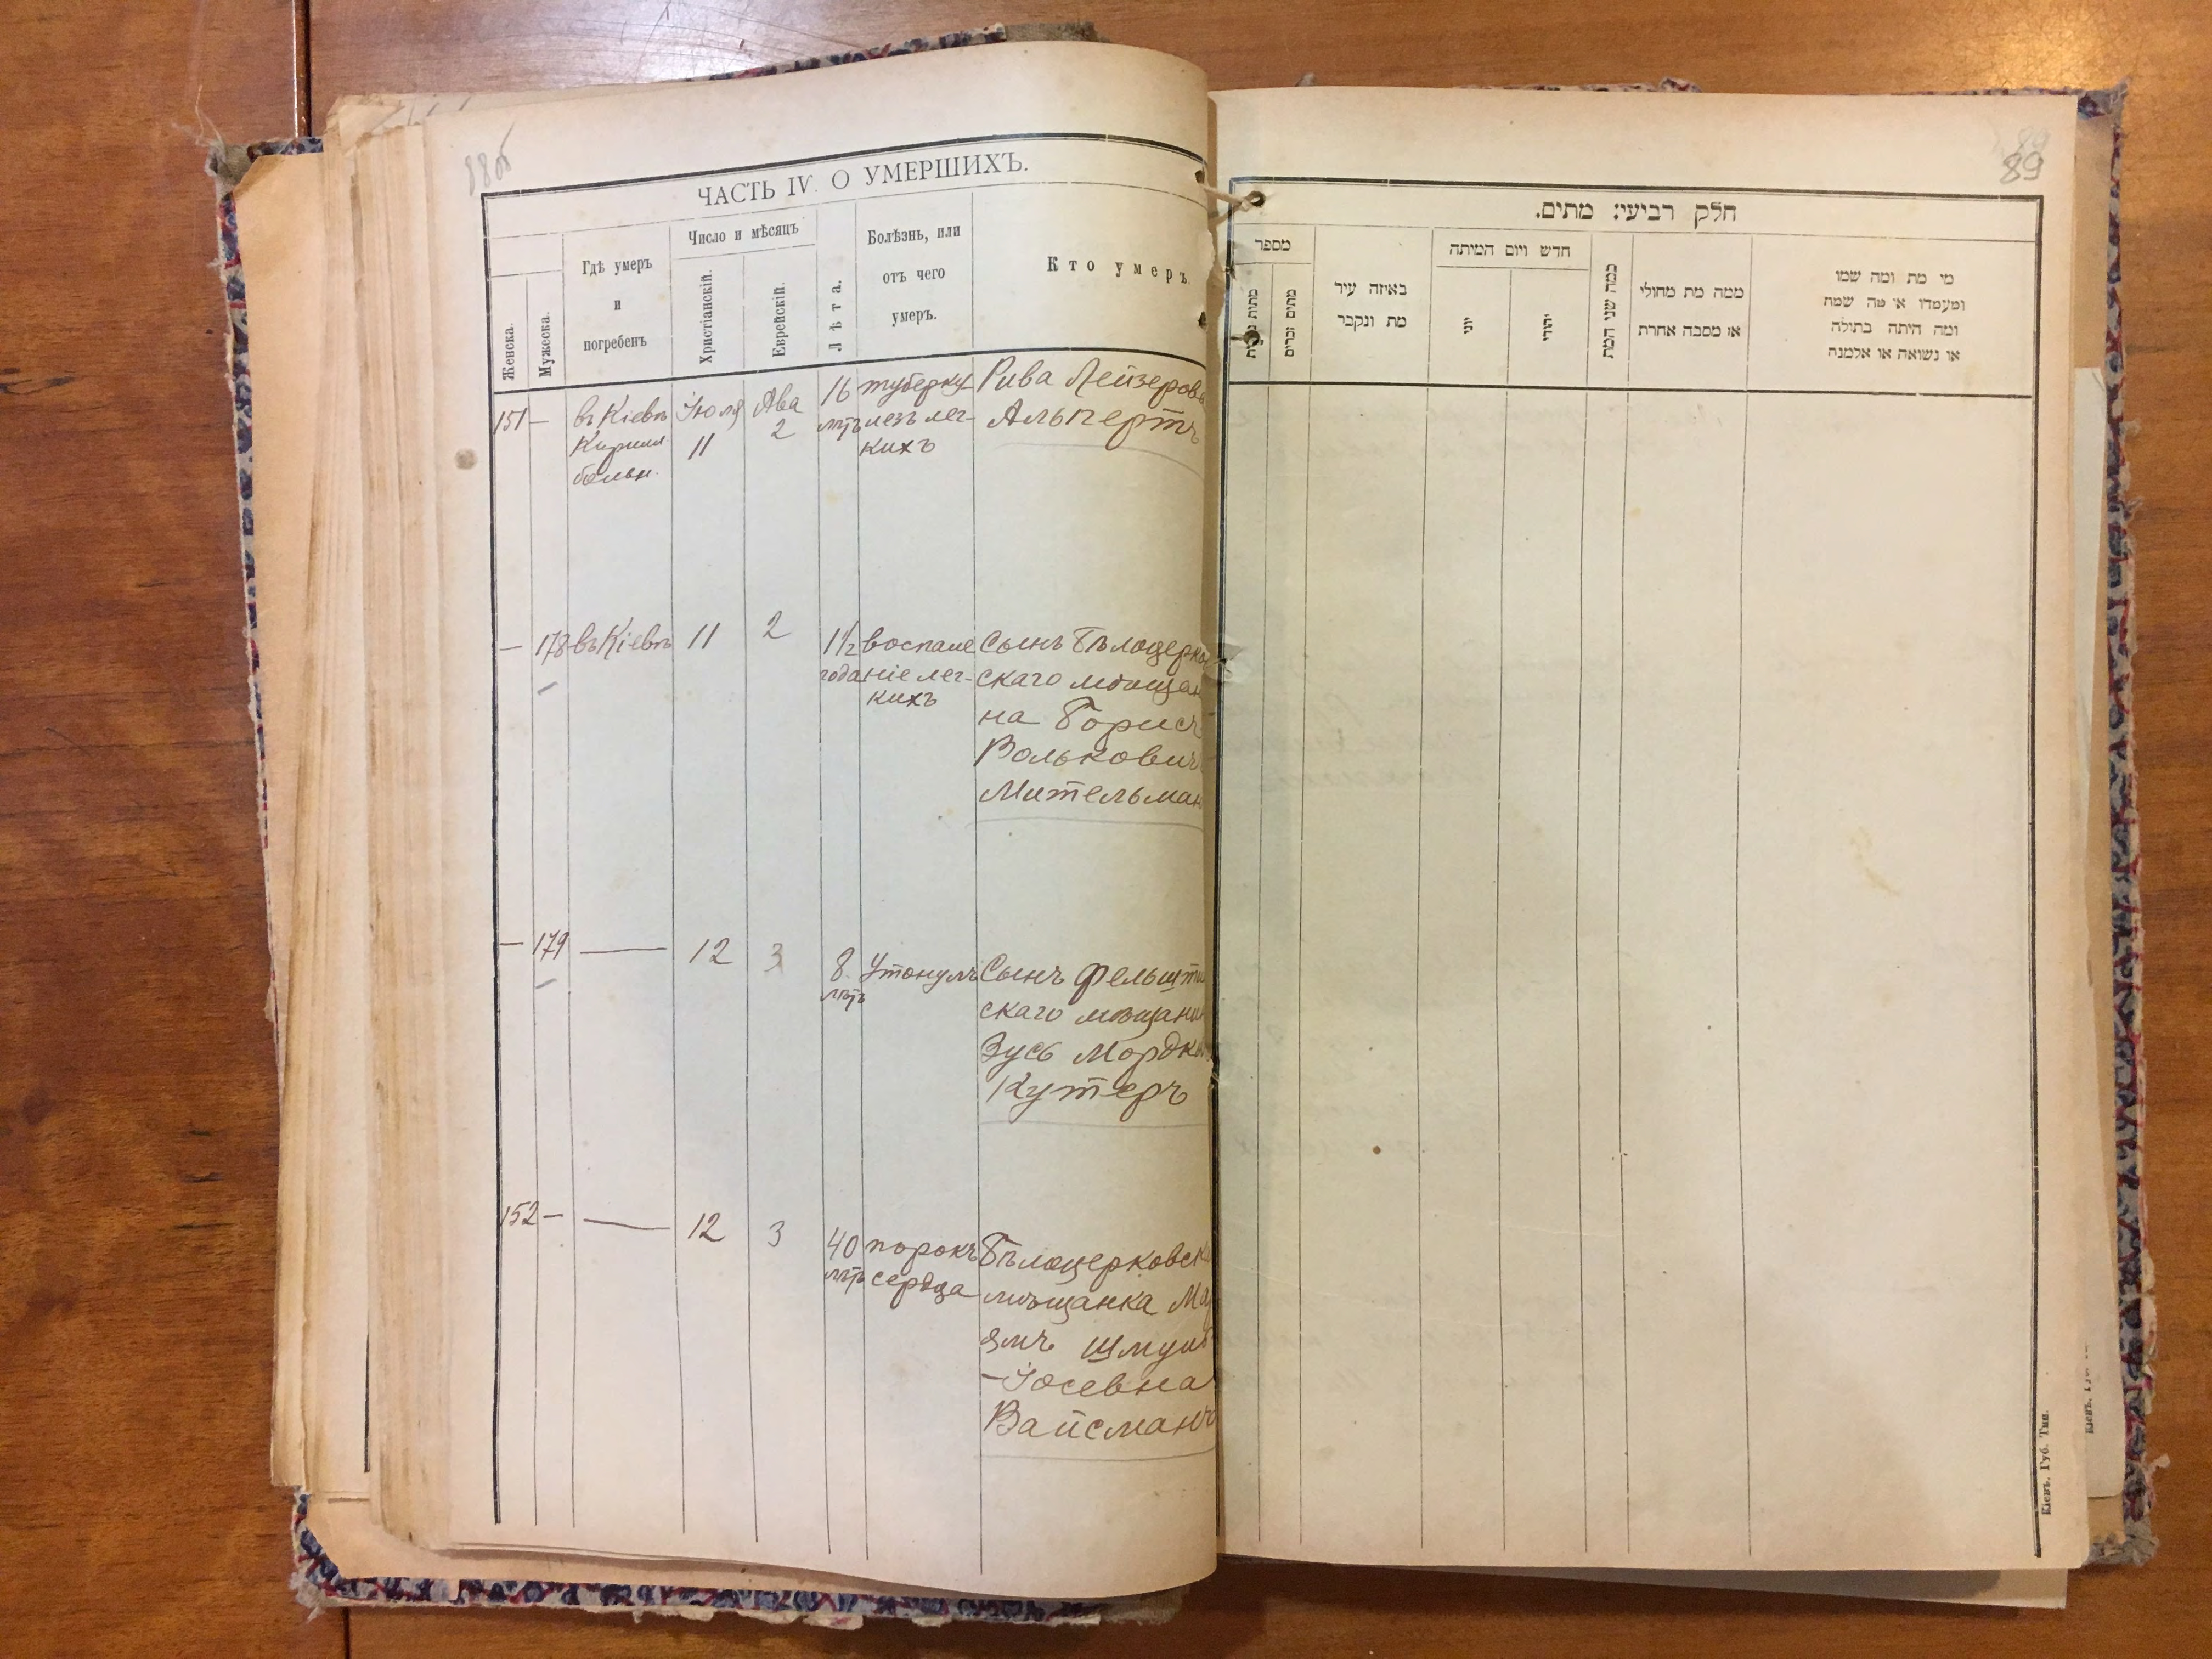 88об
ЧАСТЬ IV. О УМЕРШИХЪ.
Женска.
Мужеска.
Гдѣ умеръ
и
погребенъ
Число и мѣсяцъ
Христіанскій.
Еврейскій.
Лѣта.
Болѣзнь, или
отъ чего
умеръ.
Кто умеръ.
151 —
въ Кіевѣ
Кирилл
больн.
Іюля
11
Ава
2
16
лѣтъ
туберку
лезъ лег-
кихъ
Рива Лейзерова
Альпертъ
— 178
въ Кіевѣ
11
2
1½
года
воспале
ніе лег-
кихъ
Сынъ Бѣлоцерков
скаго мѣщан
на Борисъ
Вольковичъ
Мительман
— 179
—
12
3
8
лѣтъ
Утонулъ
Сынъ Фельшти
скаго мѣщанин
Зусь Мордко
Кутеръ
152 —
—
12
3
40
лѣтъ
порокъ
сердца
Бѣлоцерковск
мѣщанка Ма
ямъ Шмуль
-Іосевна
Вайсманъ
89
חלק רביעי: מתים.
מספר
מתים זכרים
באיזה עיר
מת ונקבר
חדש ויום המיתה
יוני
יהודי
כמה שני המת
ממה מת מחולי
או מסבה אחרת
מי מת ומה שמו
ומעמדו או מה שמת
ומה היתה בתולה
או נשואה או אלמנה
Кіевъ. Губ. Тип.